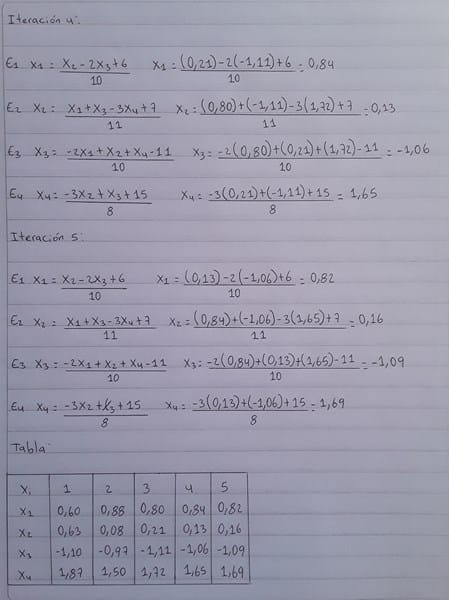 Iteración 4:
E1 X1 = X2 - 2X3 + 6 / 10 X1 = (0,21) - 2(-1,11) + 6 / 10 = 0,84
E2 X2 = X1 + X3 - 3X4 + 7 / 11 X2 = (0,80) + (-1,11) - 3(1,72) + 7 / 11 = 0,13
E3 X3 = -2X1 + X2 + X4 - 11 / 10 X3 = -2(0,80) + (0,21) + (1,72) - 11 / 10 = -1,06
E4 X4 = -3X2 + X3 + 15 / 8 X4 = -3(0,21) + (-1,11) + 15 / 8 = 1,65
Iteración 5:
E1 X1 = X2 - 2X3 + 6 / 10 X1 = (0,13) - 2(-1,06) + 6 / 10 = 0,82
E2 X2 = X1 + X3 - 3X4 + 7 / 11 X2 = (0,84) + (-1,06) - 3(1,65) + 7 / 11 = 0,16
E3 X3 = -2X1 + X2 + X4 - 11 / 10 X3 = -2(0,84) + (0,13) + (1,65) - 11 / 10 = -1,09
E4 X4 = -3X2 + X3 + 15 / 8 X4 = -3(0,13) + (-1,06) + 15 / 8 = 1,69
Tabla:
Xi 1 2 3 4 5
X1 0,60 0,88 0,80 0,84 0,82
X2 0,63 0,08 0,21 0,13 0,16
X3 -1,10 -0,97 -1,11 -1,06 -1,09
X4 1,87 1,50 1,72 1,65 1,69